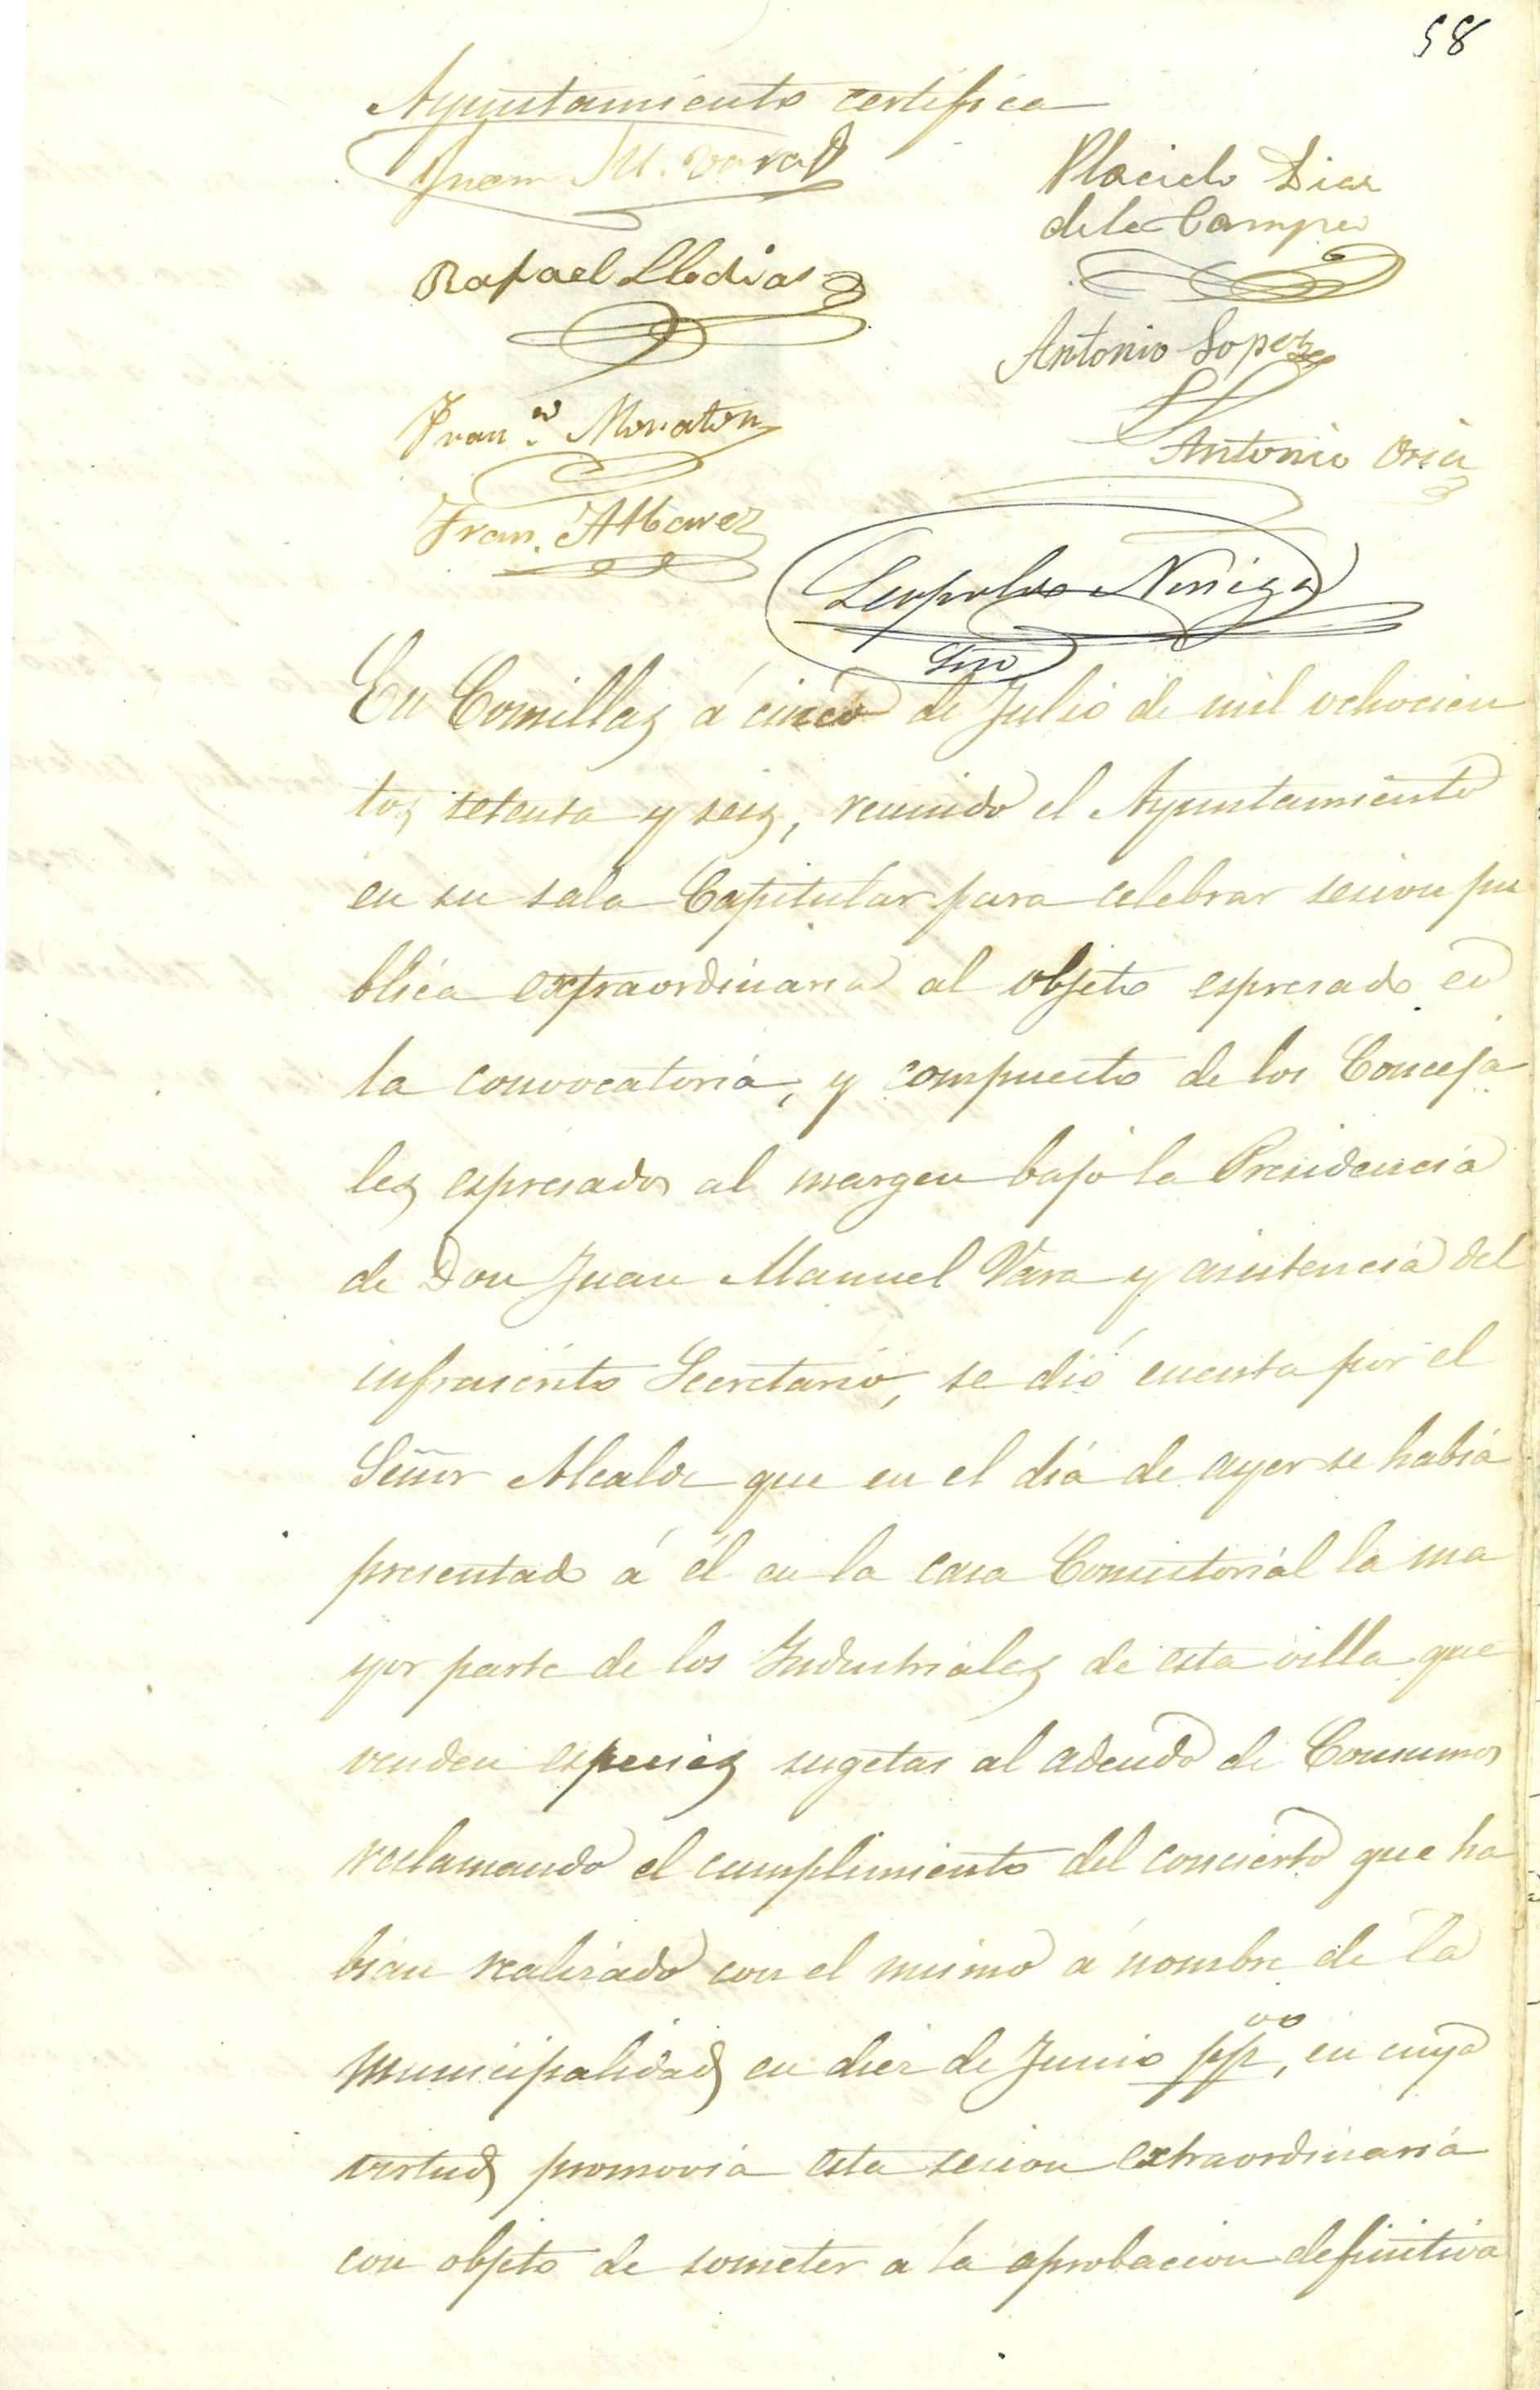 58
Ayuntamiento certifica
Juan M. Vara
Placido Diaz
de la Campa
Rafael Lledias
Antonio Lopez
Fran.co Moraton
Antonio Oria
Fran. Alvarez
Leopoldo
Srio
En Comillas á cinco de Julio de mil ochocien
tos setenta y seis, reunido el Ayuntamiento
en su sala Capitular para celebrar sesion pu
blica extraordinaria al objeto espresado en
la convocatoria, y compuesto de los Conceja
les espresados al margen bajo la Presidencia
de Don Juan Manuel Vara y asistencia del
infrascrito Secretario, se dió cuenta por el
Señor Alcalde que en el dia de ayer se habia
presentado á él en la casa Consistorial la ma
yor parte de los Industriales de esta villa que
venden especies sugetas al adeudo de Consumos
reclamando el cumplimiento del concierto que ha
bian realizado con el mismo á nombre de la
Municipalidad en diez de Junio ppdo, en cuya
virtud promovia esta sesion extraordinaria
con objeto de someter a la aprobacion definitiva